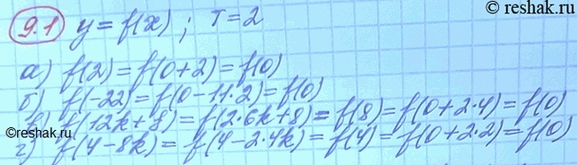 ©reshak.ru
9.1 y = f(x) ; T = 2
а) f(2) = f(0+2) = f(0)
б) f(-22) = f(0-11·2) = f(0)
в) f(12k+8) = f(2·6k+8) = f(8) = f(0+2·4) = f(0)
г) f(4-8k) = f(4-2·4k) = f(4) = f(0+2·2) = f(0)